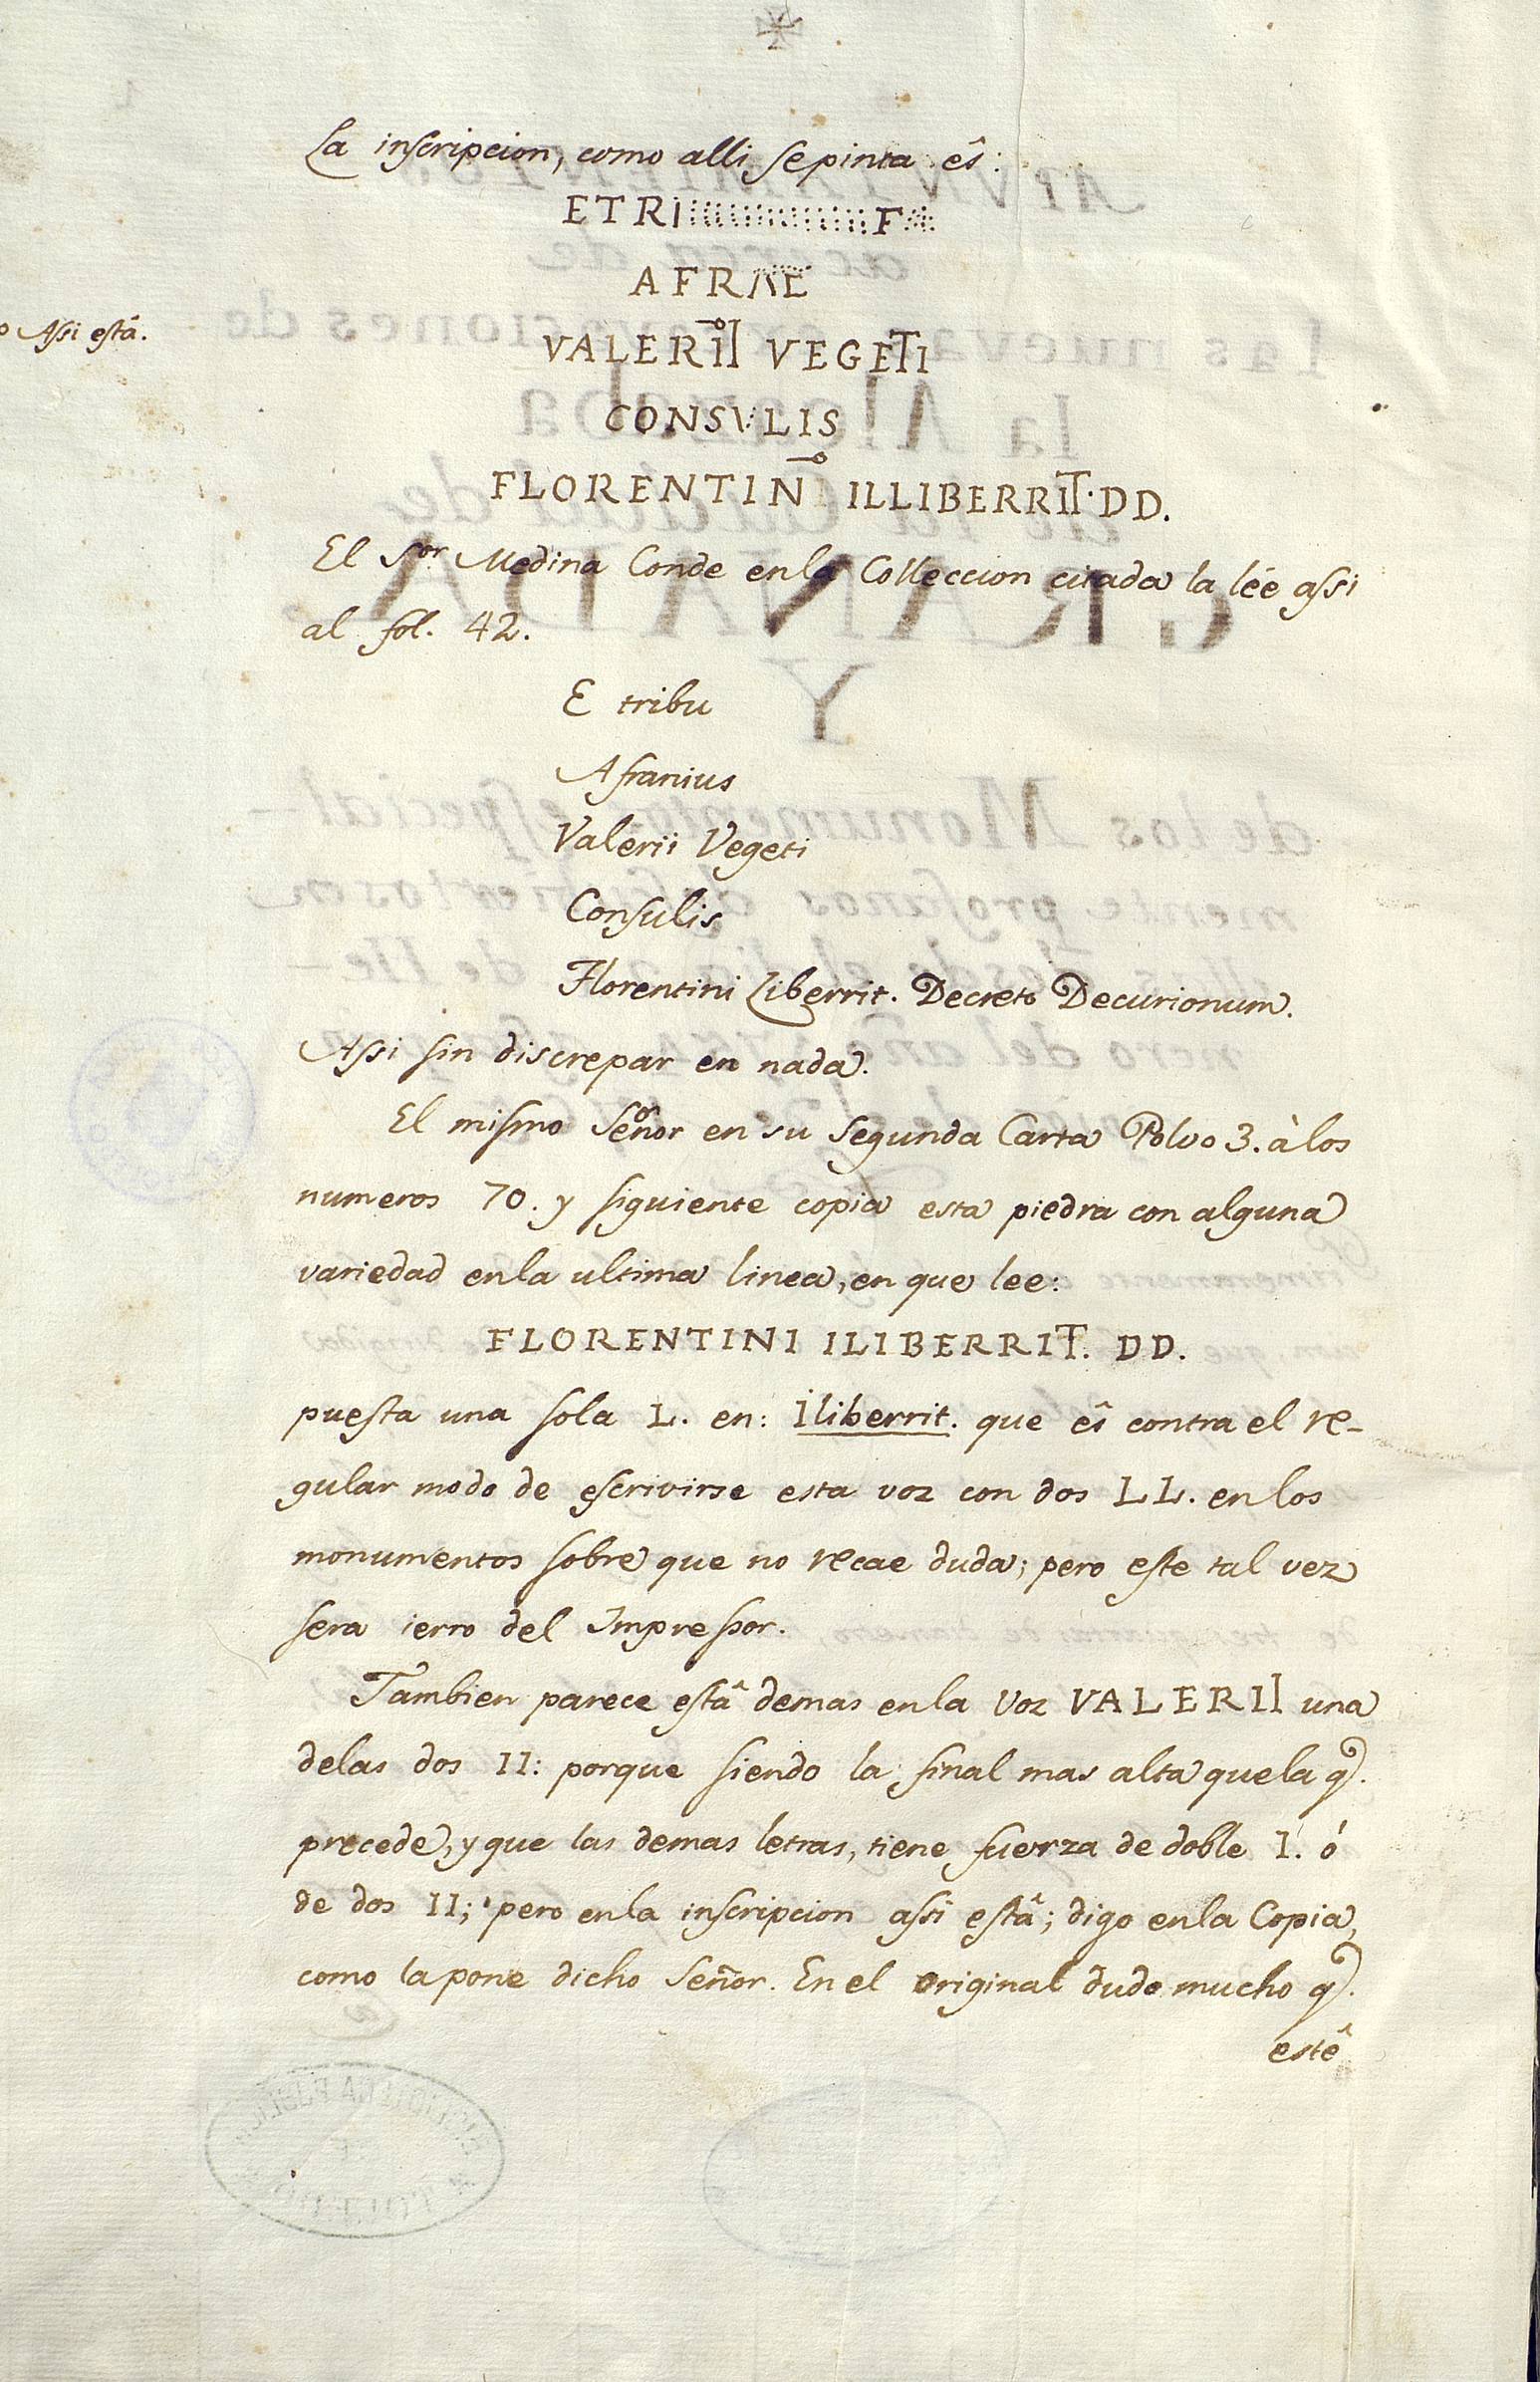 La inscripcion, como alli se pinta ês:
ETRI::::::::::::F::
AFRAE
Assi está.
VALERII VEGETI
CONSVLIS
FLORENTIN ILLIBERRIT·DD.
El Sor. Medina Conde en la Colleccion citada la lée assi
al fol. 42.
E tribu
Afranius
Valerii Vegeti
Consulis
Florentini Liberrit. Decreto Decurionum.
Assi sin discrepar en nada.
El mismo Señor en su segunda Carta Polvo 3. à los
numeros 70. y siguiente copia esta piedra con alguna
variedad en la ultima linea, en que lee:
FLORENTINI ILIBERRIT. DD.
puesta una sola L. en: Iliberrit. que ês contra el re-
gular modo de escrivirse esta voz con dos LL. en los
monumentos sobre que no recae duda; pero este tal vez
sera ierro del Impressor.
Tambien parece estâ demas en la voz VALERII una
de las dos II: porque siendo la final mas alta que la q.
precede, y que las demas letras, tiene fuerza de doble I. ó
de dos II; pero en la inscripcion assi estâ; digo en la Copia,
como la pone dicho Señor. En el original dudo mucho q.
estê